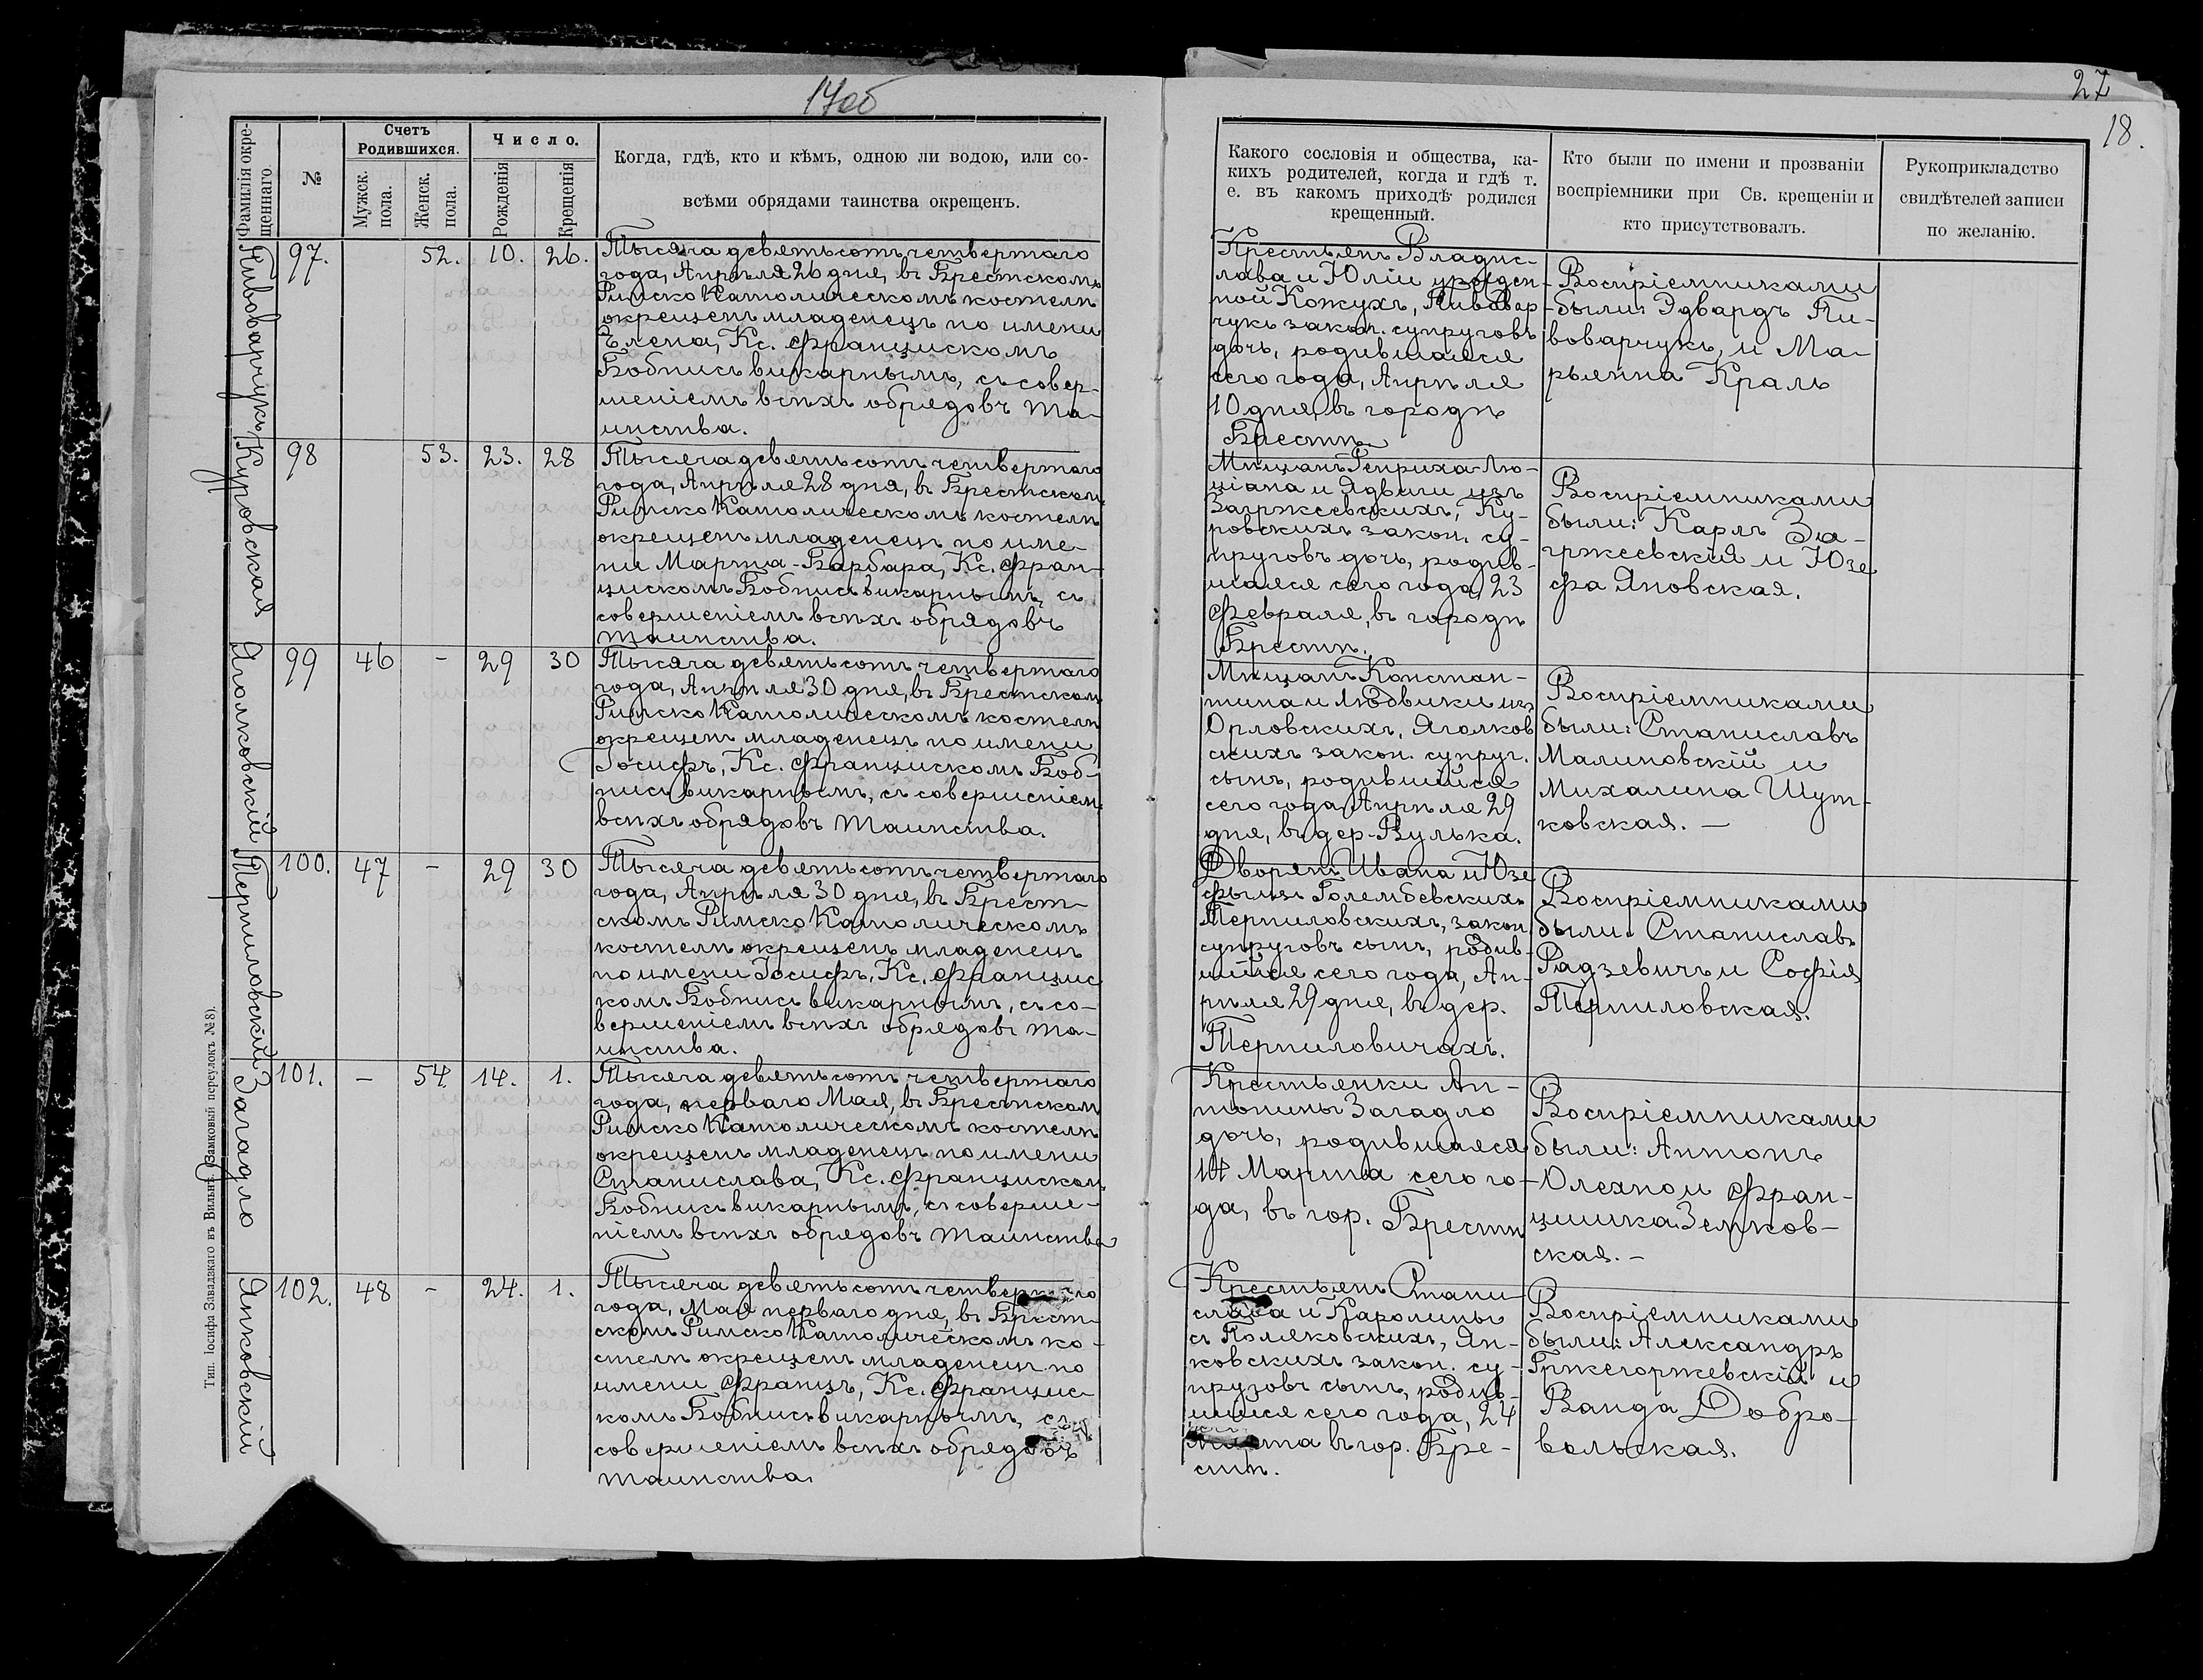 17об
27
18.
Фамилія окре-
щеннаго.
№
Счетъ
Родившихся.
Мужск.
пола.
Женск.
пола.
Число.
Рожденія
Крещенія
Когда, гдѣ, кто и кѣмъ, одною ли водою, или со-
всѣми обрядами таинства окрещенъ.
Какого сословія и общества, ка-
кихъ родителей, когда и гдѣ т.
е. въ какомъ приходѣ родился
крещенный.
Кто были по имени и прозваніи
воспріемники при Св. крещеніи и
кто присутствовалъ.
Рукоприкладство
свидѣтелей записи
по желанію.
Пивоварчукъ
97.
52.
10.
26.
Тысяча девятьсотъ четвертаго
года, Апрѣля 26 дня, въ Брестскомъ
Римско Католическомъ костелѣ
окрещенъ младенецъ по имени
Елена, Кс. Францискомъ
Бобнисъ викарнымъ, съ совер-
шеніемъ всѣхъ обрядовъ Та-
инства.
Крестьянъ Владис-
лава и Юліи урожден-
ной Кожухъ, Пивовар-
чукъ закон. супруговъ
дочь, родившаяся
сего года, Апрѣля
10 дня, въ городѣ
Брестѣ.
Воспріемниками
были: Эдвардъ Пи-
воварчукъ, и Ма-
рьянна Краль
Куровская
98
53.
23.
28
Тысяча девятьсотъ четвертаго
года, Апрѣля 28 дня, въ Брестском
Римско Католическомъ костелѣ
окрещенъ младенецъ по име-
ни Марта-Барбара, Кс. Фран-
цискомъ Бобнисъ викарнымъ, съ
совершеніемъ всѣхъ обрядовъ
таинства.
Мѣщанъ Генриха-Лю-
ціана и Ядвиги изъ
Загржеевскихъ, Ку-
ровскихъ закон. су-
пруговъ дочь, родив-
шаяся сего года, 23
Февраля, въ городѣ
Брестѣ.
Воспріемниками
были: Карлъ За-
гржеевскій и Юзе
фа Яновская.
Яголковскій
99
46
-
29
30
Тысяча девятьсотъ четвертаго
года, Апрѣля 30 дня, въ Брестском
Римско Католическомъ костелѣ
окрещенъ младенецъ по имени
Іосифъ, Кс. Францискомъ Боб-
нисъ викарнымъ, съ совершеніем
всѣхъ обрядовъ Таинства.
Мѣщанъ Констан-
тина и Людвики изъ
Орловскихъ, Яголков
скихъ закон. супруг.
сынъ, родившійся
сего года Апрѣля 29
дня, въ дер. Вулька.
Воспріемниками
были: Станиславъ
Малиновскій и
Михалина Шут-
ковская. —
Терпиловскій
100.
47
-
29
30
Тысяча девятьсотъ четвертаго
года, Апрѣля 30 дня, въ Брест-
скомъ Римско Католическомъ
костелѣ окрещенъ младенецъ
по имени Іосифъ, Кс. Францис
комъ Бобнисъ викарнымъ, съ со-
вершеніемъ всѣхъ обрядовъ та-
инства.
Дворянъ Ивана и Юзе
фы изъ Голембевскихъ
Терпиловскихъ, закон
супруговъ сынъ, родив-
шійся сего года, Ап-
рѣля 29 дня, въ дер.
Терпиловичахъ.
Воспріемниками
были: Станиславъ
Радзевичъ и Софія
Терпиловская.
Загадло
101.
-
54.
14.
1.
Тысяча девятьсотъ четвертаго
года, перваго Мая, въ Брестском
Римско Католическомъ костелѣ
окрещенъ младенецъ по имени
Станислава, Кс. Францискомъ
Бобнисъ викарнымъ, съ соверше-
ніемъ всѣхъ обрядовъ Таинства
Крестьянки Ан-
тонины Загадло
дочь, родившаяся
14 Марта сего го-
да, въ гор. Брестѣ
Воспріемниками
были: Антонъ
Олехно и Фран-
цишка Земков-
ская. —
Янковскій
102.
48
-
24.
1.
Тысяча девятьсотъ четвертаго
года, Мая перваго дня, въ Брест-
скомъ Римско Католическомъ ко-
стелѣ окрещенъ младенецъ по
имени Францъ, Кс. Францис-
комъ Бобнисъ викарнымъ, съ
совершеніемъ всѣхъ обрядовъ
таинства.
Крестьянъ Стани
слава и Каролины
съ Поляковскихъ, Ян-
ковскихъ закон. су-
пруговъ сынъ, родив-
шійся сего года, 24
Марта въ гор. Бре-
стѣ.
Воспріемниками
были: Александръ
Гржегоржевскій и
Ванда Добро-
вольская.
Тип. Іосифа Завадзкаго въ Вильнѣ (Замковый переулокъ № 8).